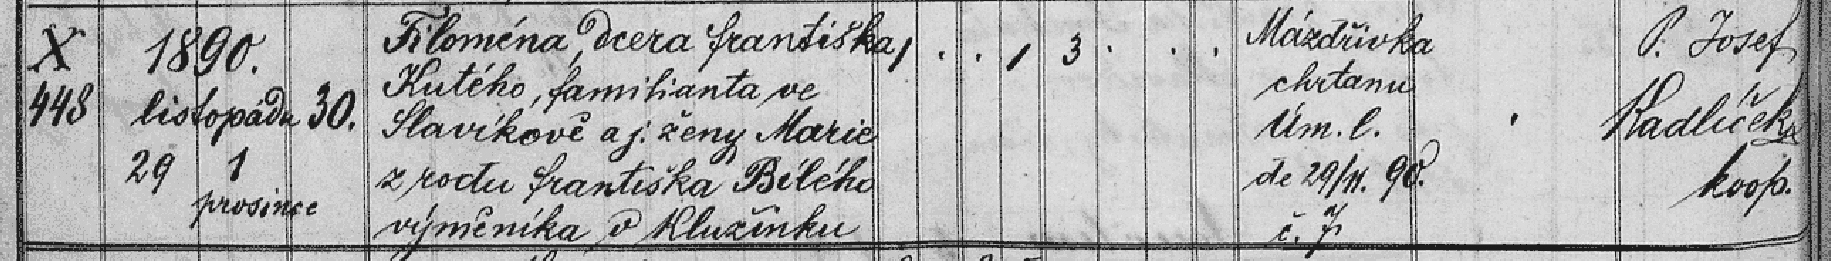 X
448
1890.
listopádu 30.
29 1
prosince
Filoména, dcera františka
Kutého, familianta ve
Slavíkově a j. ženy Marie
z rodu františka Bílého
výměníka v Kluzínku
1 . . 1 3 . . .
Mázdřivka
chrtanu
Úm. l.
de 29/11. 90.
č. 7
.
P. Josef
Kadlíček
koop.